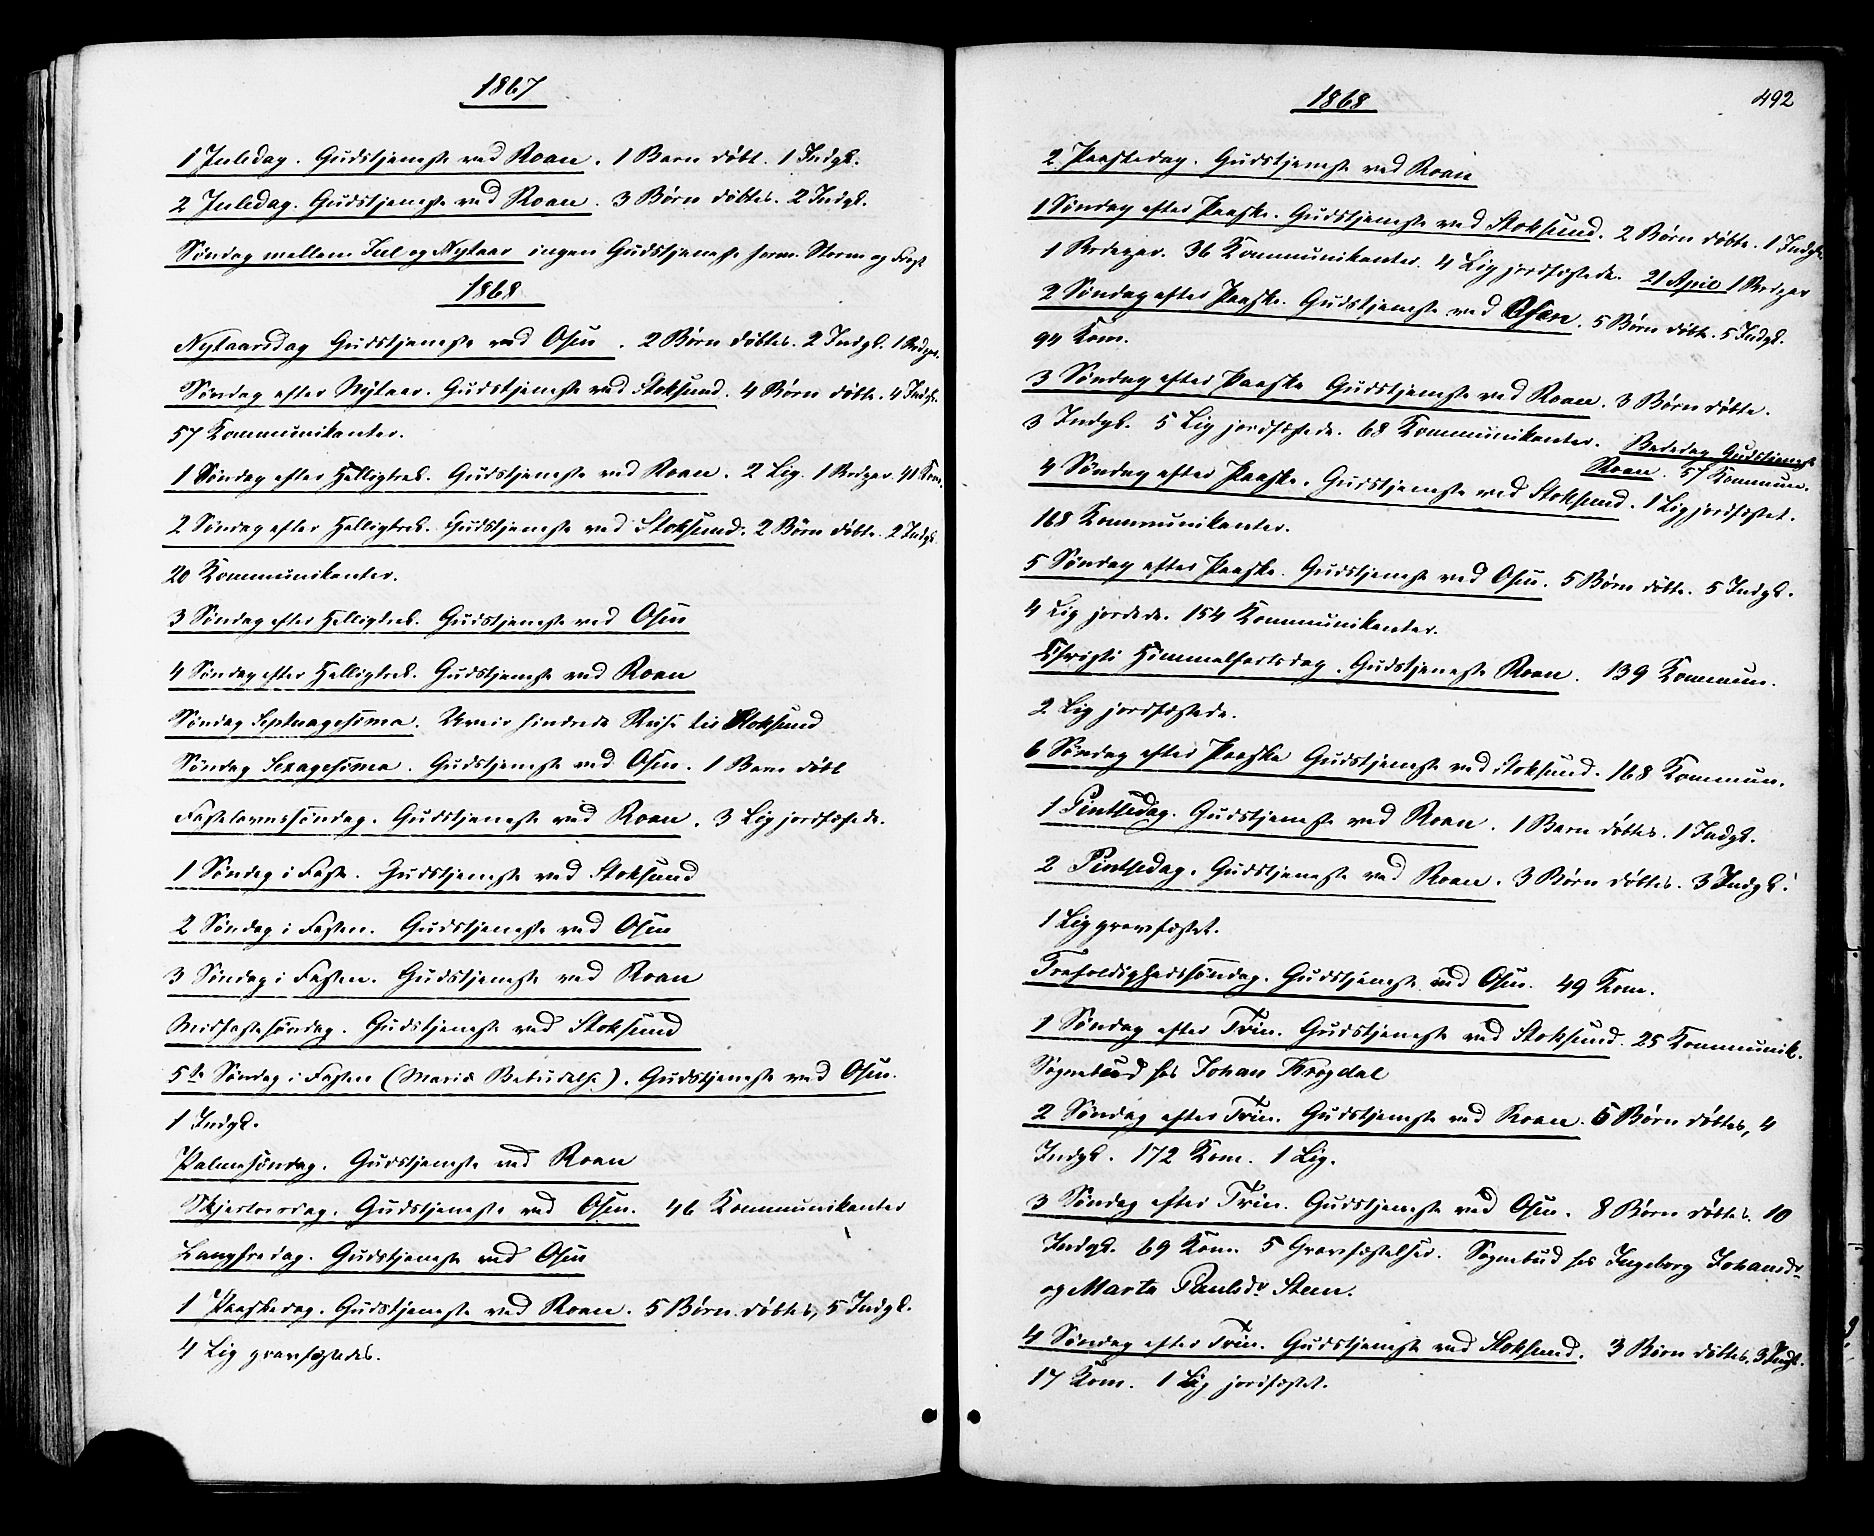 1867
1 Juledag. Gudstjeneste ved Roan. 1 Barn døbt. 1 Indgl.
2 Juledag. Gudstjeneste ved Roan. 3 Børn døbtes. 2 Indgl.
Søndag mellem Jul og Nytaar ingen Gudstjeneste form. Storm og
1868
Nytaarsdag Gudstjeneste ved Osen. 2 Børn døbtes. 2 Indgl. 1
Søndag efter Nytaar. Gudstjeneste ved Stoksund. 4 Børn døbte. 4 Indgl.
57 Kommunikanter.
1 Søndag efter Helligtrek. Gudstjeneste ved Roan. 2 Lig. 1 Brudepar. 41 Kom.
2 Søndag efter Helligtrek. Gudstjeneste ved Stoksund. 2 Børn døbte. 2 Indgl.
20 Kommunikanter.
3 Søndag efter Helligtrek. Gudstjeneste ved Osen
4 Søndag efter Helligtrek. Gudstjeneste ved Roan
Søndag Septuagesima. Uveir hindrede Reise til Stoksund
Søndag Sexagesima. Gudstjeneste ved Osen. 1 Barn døbt
Fastelavnssøndag. Gudstjeneste ved Roan. 3 Lig jordfæstede.
1 Søndag i Faste. Gudstjeneste ved Stoksund
2 Søndag i Fasten. Gudstjeneste ved Osen
3 Søndag i Fasten. Gudstjeneste ved Roan
Midfastesøndag. Gudstjeneste ved Stoksund
5te Søndag i Fasten (Mariæ Bebudelse). Gudstjeneste ved Osen.
1 Indgl.
Palmesøndag. Gudstjeneste ved Roan
Skjertorsdag. Gudstjeneste ved Osen. 46 Kommunikanter
Langfredag. Gudstjeneste ved Osen
1 Paaskedag. Gudstjeneste ved Roan. 5 Børn døbtes, 5 Indgl.
4 Lig gravfæstedes.
1868
492
2 Paaskedag. Gudstjeneste ved Roan
1 Søndag efter Paaske. Gudstjeneste ved Stoksund. 2 Børn døbte. 1 Indgl.
1 Brudepar. 36 Kommunikanter. 4 Lig jordfæstede. 21 April 1 Brudepar
2 Søndag efter Paaske. Gudstjeneste ved Osen. 5 Børn døbte. 5 Indgl.
94 Kom.
3 Søndag efter Paaske Gudstjeneste ved Roan. 3 Børn døbte.
3 Indgl. 5 Lig jordfæstede. 68 Kommunikanter. Bededag Gudstjeneste
Roan. 57 Kommun.
4 Søndag efter Paaske. Gudstjeneste ved Stoksund. 1 Lig jordfæstet.
168 Kommunikanter.
5 Søndag efter Paaske. Gudstjeneste ved Osen. 5 Børn døbte. 5 Indgl.
4 Lig jordede. 154 Kommunikanter.
Christi Himmelfartsdag. Gudstjeneste Roan. 139 Kommun.
2 Lig jordfæstede.
6 Søndag efter Paaske Gudstjeneste ved Stoksund. 168 Kommun.
1 Pintsedag. Gudstjeneste ved Roan. 1 Barn døbtes. 1 Indgl.
2 Pintsedag. Gudstjeneste ved Roan. 3 Børn døbtes. 3 Indgl.
1 Lig gravfæstet.
Trefoldighedssøndag. Gudstjeneste ved Osen. 49 Kom.
1 Søndag efter Trin. Gudstjeneste ved Stoksund. 25 Kommunik.
Sognebud hos Johan Krogdal
2 Søndag efter Trin. Gudstjeneste ved Roan. 6 Børn døbtes, 4
Indgl. 172 Kom. 1 Lig.
3 Søndag efter Trin. Gudstjeneste ved Osen. 8 Børn døbtes. 10
Indgl. 69 Kom. 5 Gravfæstelser. Sognebud hos Ingeborg Johansdr
og Marta Paulsdr Steen.
4 Søndag efter Trin. Gudstjeneste ved Stoksund. 3 Børn døbtes. 3 Indgl.
17 Kom. 1 Lig jordfæstet.